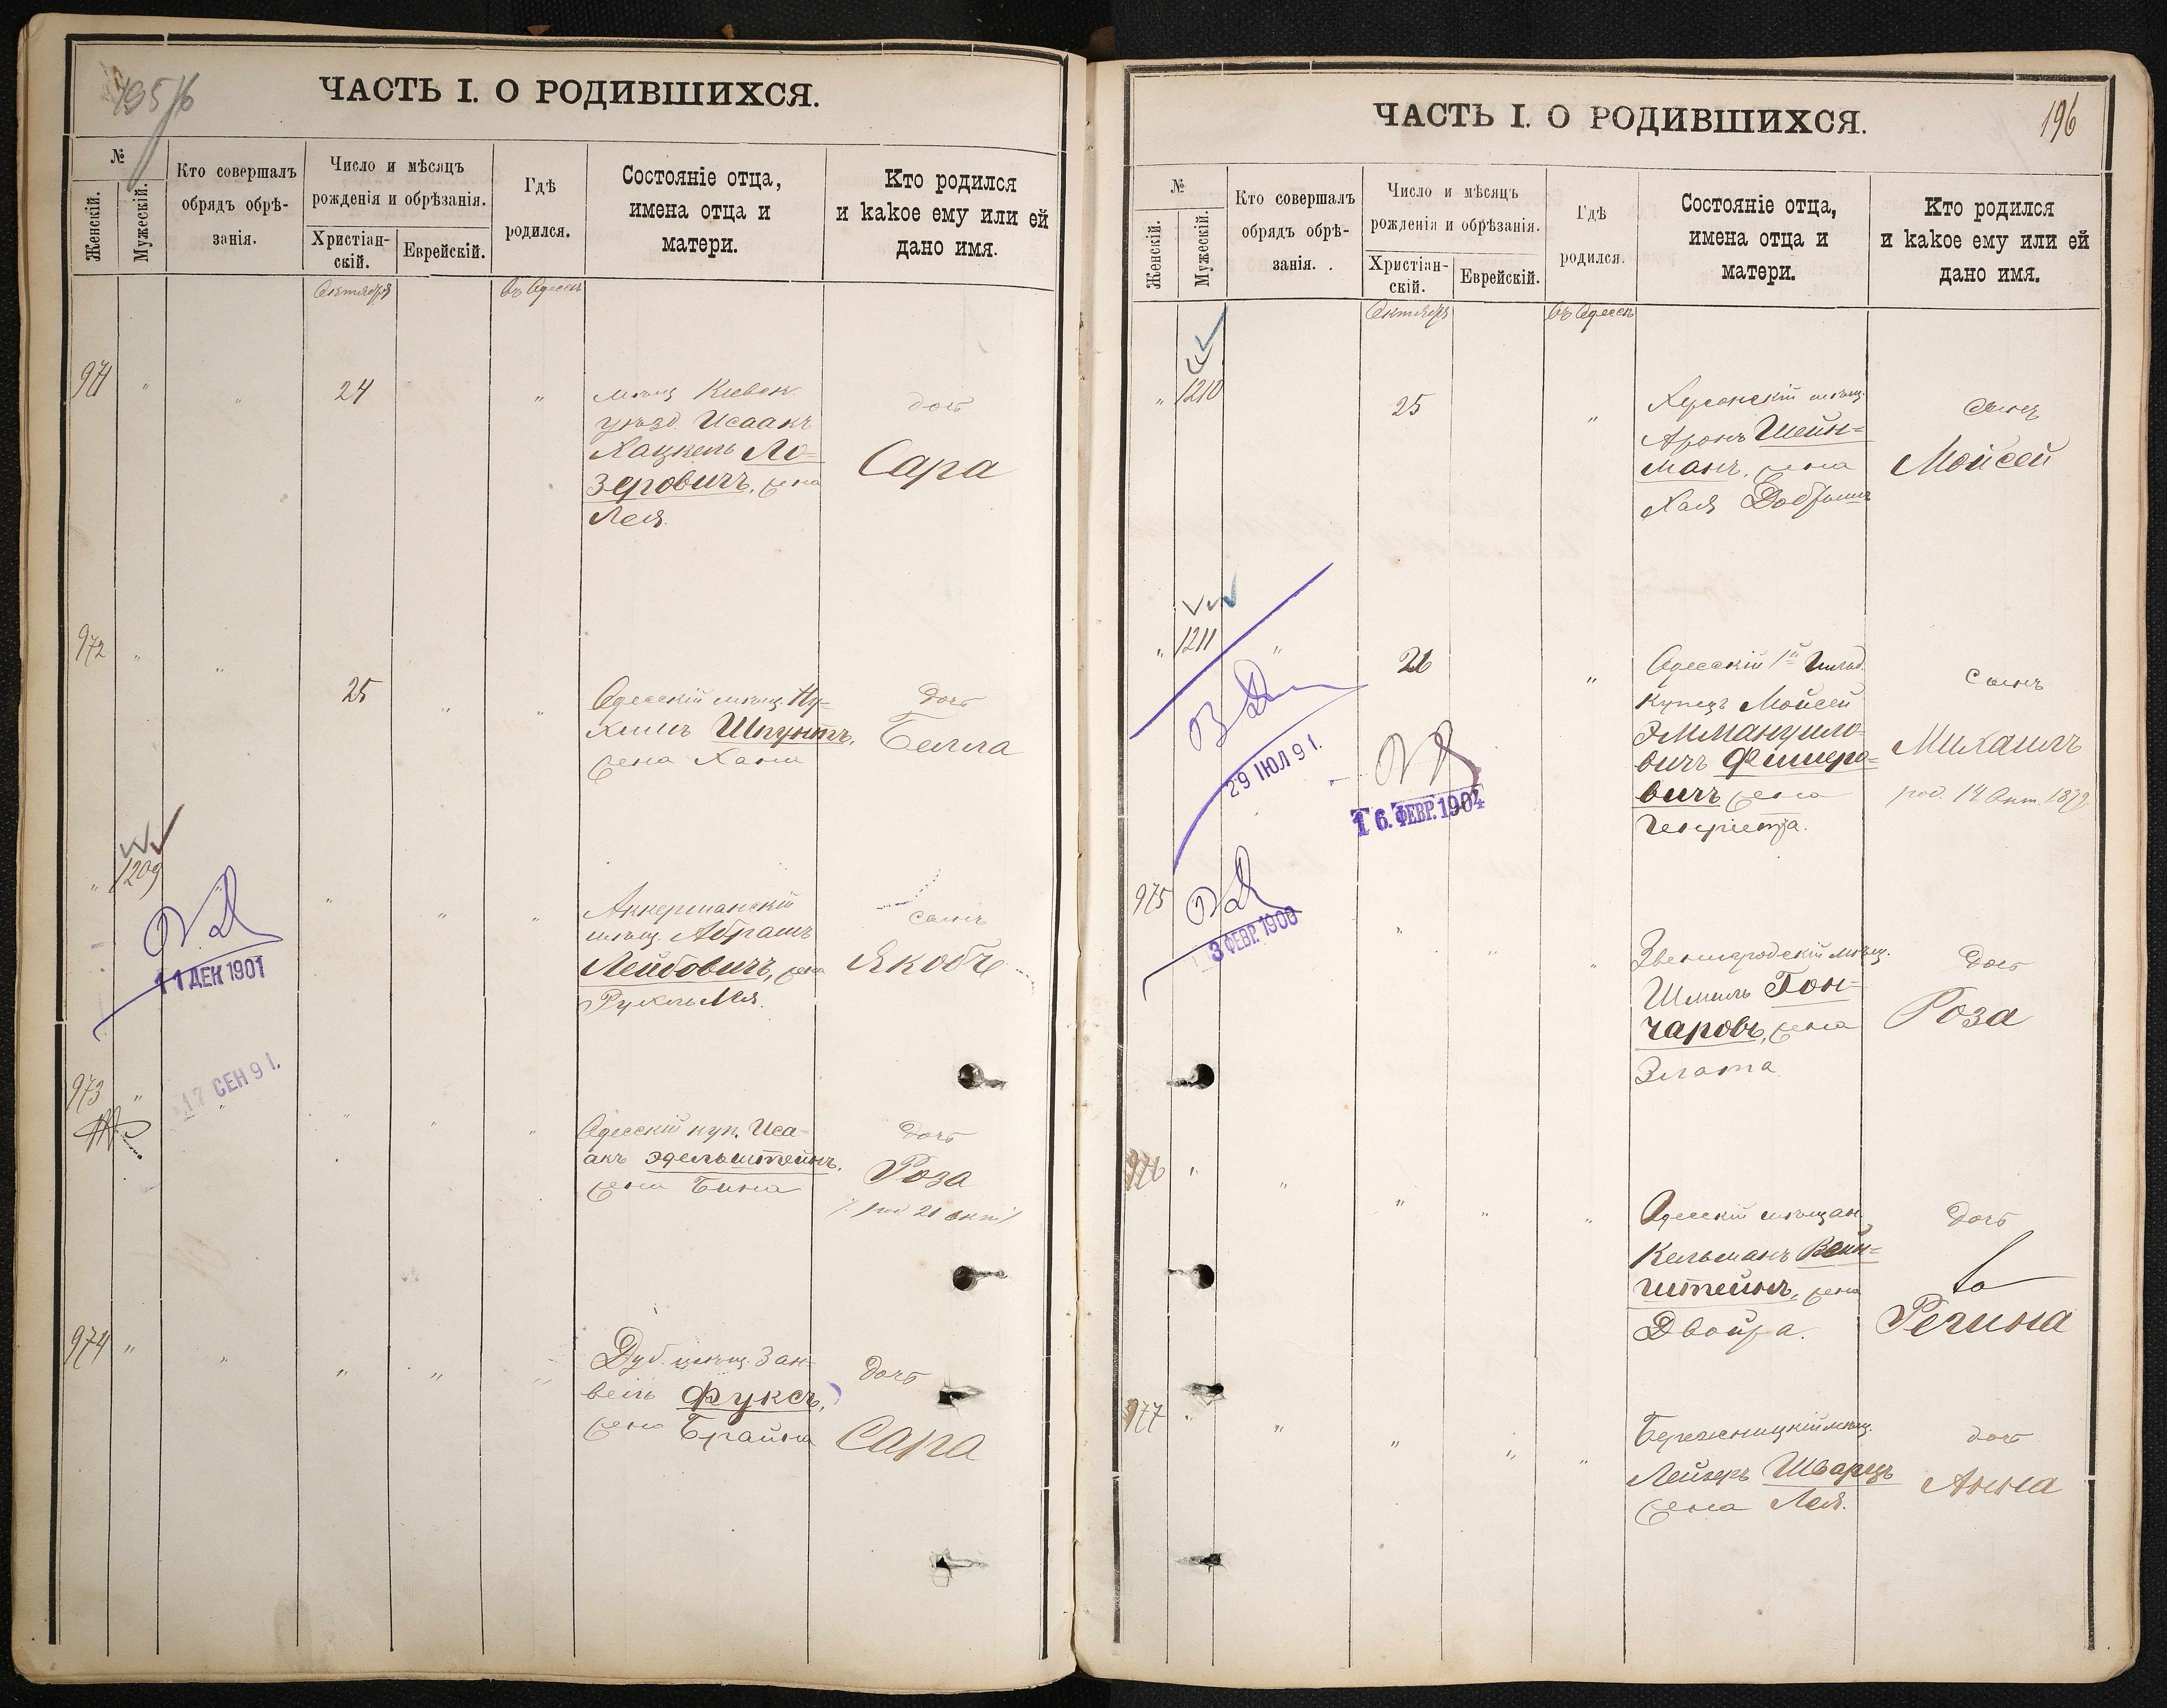 195
ЧАСТЬ I. О РОДИВШИХСЯ.
№
Женскій.
Мужескій.
Кто совершалъ
обрядъ обрѣ-
занія.
Число и мѣсяцъ
рожденія и обрѣзанія.
Христіан-
скій.
Еврейскій.
Гдѣ
родился.
Состояніе отца,
имена отца и
матери.
Кто родился
и какое ему или ей
дано имя.
Октября
въ Одессѣ
971 " " 24 "
мѣщ.
уѣзд. Исаакъ
Хацкель Ло-
зеровичъ, жена
Лея.
дочь
Сара
972 " " 25 " "
Одесскій мѣщ. Ну-
химъ Шпунтъ,
жена Хана
дочь
Белла
" 1209 " " "
11 ДЕК 1901
Аккерманскій
мѣщ. Абрамъ
Лейбовичъ, жена
Рухль Лея.
сынъ
Якобъ
17 СЕН 91.
973 " " " " "
Одесскій куп. Иса-
акъ Эдельштейнъ,
жена Бина
дочь
Роза
974 " " " " "
Дуб. мѣщ. Зан-
вель Фуксъ,
жена Брайна
дочь
Сара
ЧАСТЬ I. О РОДИВШИХСЯ.
196
№
Женскій.
Мужескій.
Кто совершалъ
обрядъ обрѣ-
занія.
Число и мѣсяцъ
рожденія и обрѣзанія.
Христіан-
скій.
Еврейскій.
Гдѣ
родился.
Состояніе отца,
имена отца и
матери.
Кто родился
и какое ему или ей
дано имя.
Октября
въ Одессѣ
" 1210 25 "
Херсонскій мѣщ.
Аронъ Шейн-
манъ, жена
Хая
сынъ
Мойсей
" 1211 " 26 "
29 ІЮЛ 91.
16. ФЕВР. 1904
Одесскій 1й гильд.
купецъ Мойсей
Эммануило-
вичъ Фишеро-
вичъ жена
Генріетта.
сынъ
Михаилъ
род. 14 Окт. 1879
975 " " "
3 ФЕВР. 1900
Звенигородскій мѣщ.
Шмиль Гон-
чаровъ, жена
Злата
дочь
Роза
976 " " " " "
Одесскій мѣщан.
Кельманъ Вайн-
штейнъ, жена
Двойра.
дочь
Регина
977 " " " " "
Бережницкій мѣщ.
Лейзеръ Шварцъ
жена Лея.
дочь
Анна